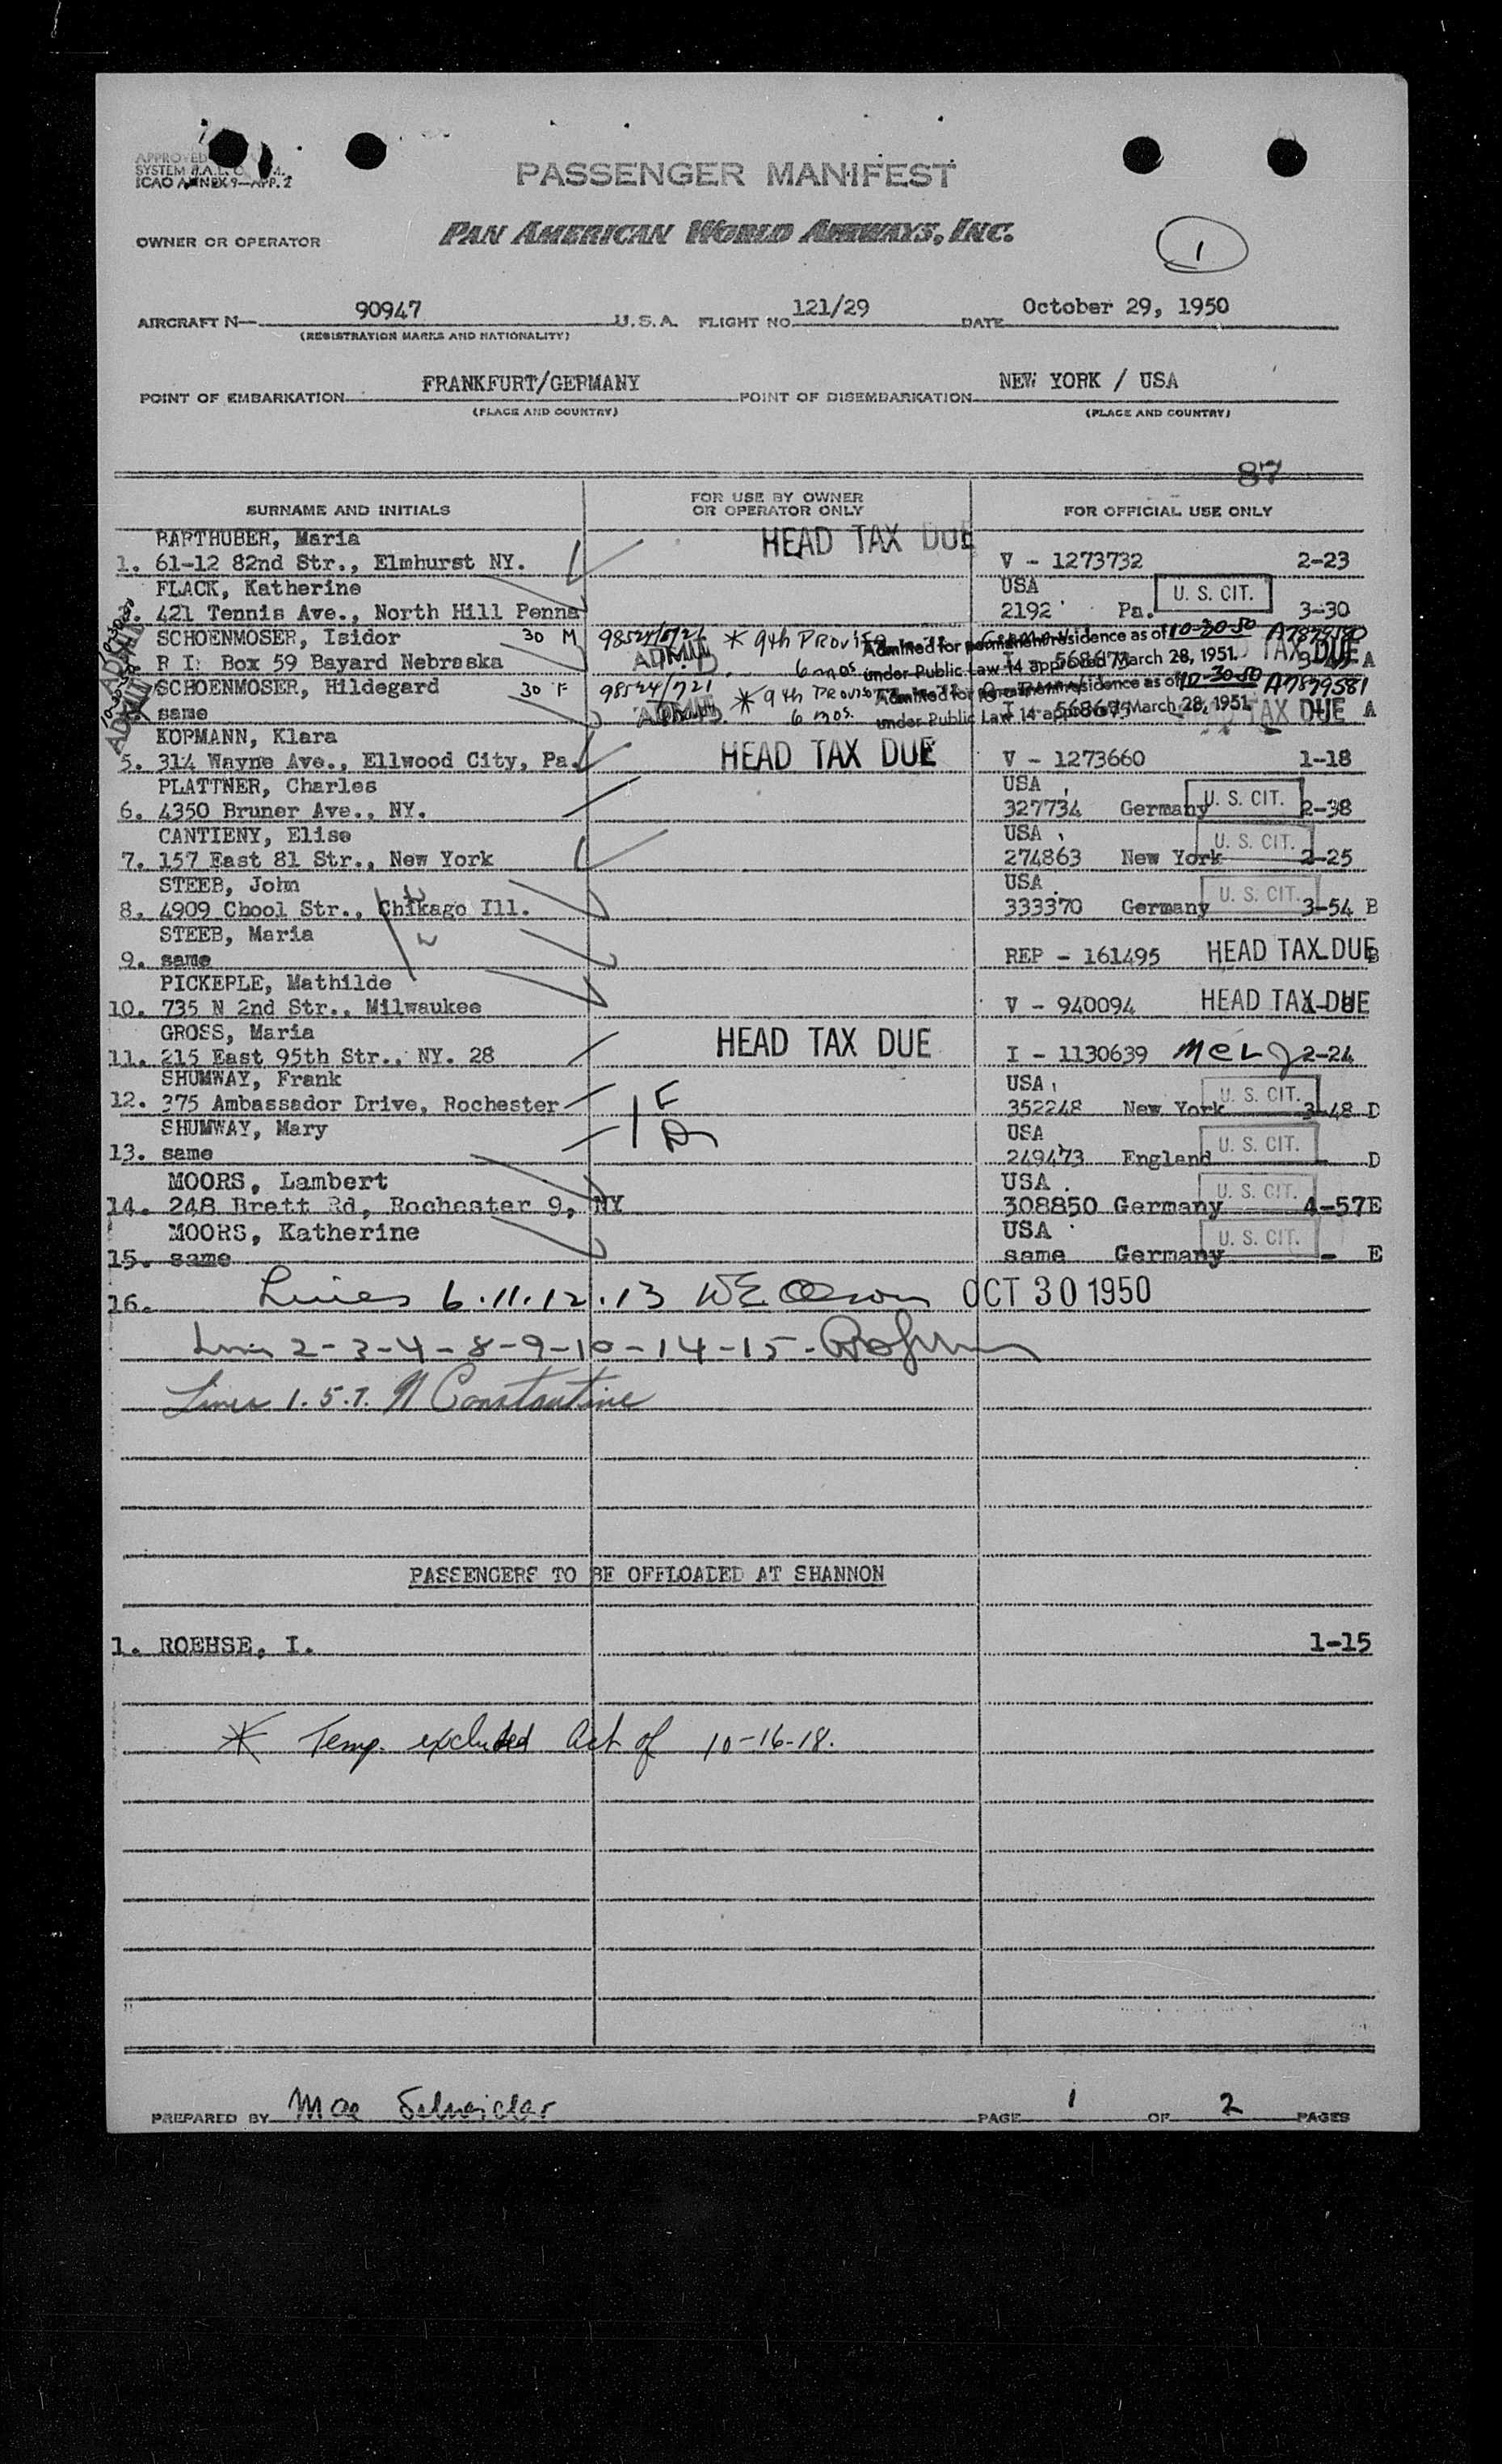 APPROVED
SYSTEM
ICAO ANNEX 9—APP. 2
PASSENGER MANIFEST
OWNER OR OPERATOR
PAN AMERICAN WORLD AIRWAYS, INC.
1
AIRCRAFT N— 90947 U.S.A. FLIGHT NO. 121/29 DATE October 29, 1950
(REGISTRATION MARKS AND NATIONALITY)
POINT OF EMBARKATION FRANKFURT/GERMANY POINT OF DISEMBARKATION NEW YORK / USA
(PLACE AND COUNTRY) (PLACE AND COUNTRY)
87
SURNAME AND INITIALS FOR USE BY OWNER OR OPERATOR ONLY FOR OFFICIAL USE ONLY
BARTHUBER, Maria HEAD TAX DUE
1. 61-12 82nd Str., Elmhurst NY. V - 1273732 2-23
FLACK, Katherine USA U. S. CIT.
421 Tennis Ave., North Hill Penna 2192 Pa. 3-30
SCHOENMOSER, Isidor 30 M * 9th Proviso Admitted for permanent residence as of 10-30-50 A7879580
R I: Box 59 Bayard Nebraska ADMIT 6 mos. under Public Law 14 approved March 28, 1951. TAX DUE A
SCHOENMOSER, Hildegard 30 F 98524/721 * 9th Proviso Admitted for permanent residence as of 10-30-50 A7879581
same 6 mos. under Public Law 14 approved March 28, 1951. TAX DUE A
KOPMANN, Klara
5. 314 Wayne Ave., Ellwood City, Pa. HEAD TAX DUE V - 1273660 1-18
PLATTNER, Charles USA
6. 4350 Bruner Ave., NY. 327734 Germany U. S. CIT. 2-38
CANTIENY, Elise USA
7. 157 East 81 Str., New York 274863 New York U. S. CIT. 2-25
STEEB, John USA
8. 4909 Chool Str., Chikago Ill. 333370 Germany U. S. CIT. 3-54 B
STEEB, Maria
9. same REP - 161495 HEAD TAX DUE B
PICKERLE, Mathilde
10. 735 N 2nd Str., Milwaukee V - 940094 HEAD TAX DUE
GROSS, Maria
11. 215 East 95th Str., NY. 28 HEAD TAX DUE I - 1130639 2-24
SHUMWAY, Frank USA
12. 375 Ambassador Drive, Rochester 352248 New York U. S. CIT. 3-48 D
SHUMWAY, Mary USA
13. same 249473 England U. S. CIT. - D
MOORS, Lambert USA
14. 248 Brett Rd, Rochester 9, NY 308850 Germany U. S. CIT. 4-57E
MOORS, Katherine USA
15. same same Germany U. S. CIT. - E
16. Lines 6.11.12.13 OCT 30 1950
Lines 2-3-4-8-9-10-14-15-
Lines 1.5.7. N Constantine
PASSENGERS TO BE OFFLOADED AT SHANNON
1. ROEHSE, I. 1-15
* Temp. excluded Act of 10-16-18.
PREPARED BY Mae Schneider PAGE 1 OF 2 PAGES